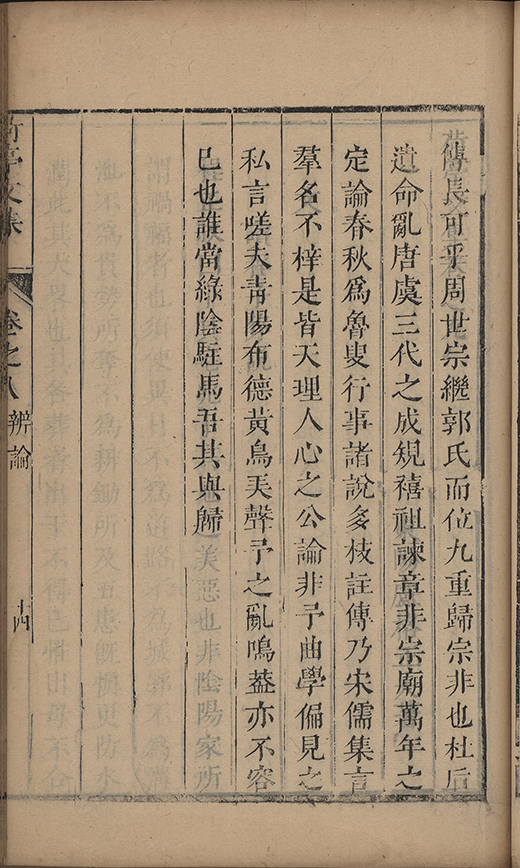 傳長可乎周世宗繼郭氏而位九重歸宗非也杜后
遺命亂唐虞三代之成規禧祖諫章非宗廟萬年之
定論春秋爲魯叟行事諸說多枝註傳乃宋儒集言
羣名不梓是皆天理人心之公論非予曲學偏見之
私言嗟夫青陽布德黃鳥天聲予之亂鳴葢亦不容
已也誰當綠陰駐馬吾其與歸
亭文集
卷之八
辨論
十四